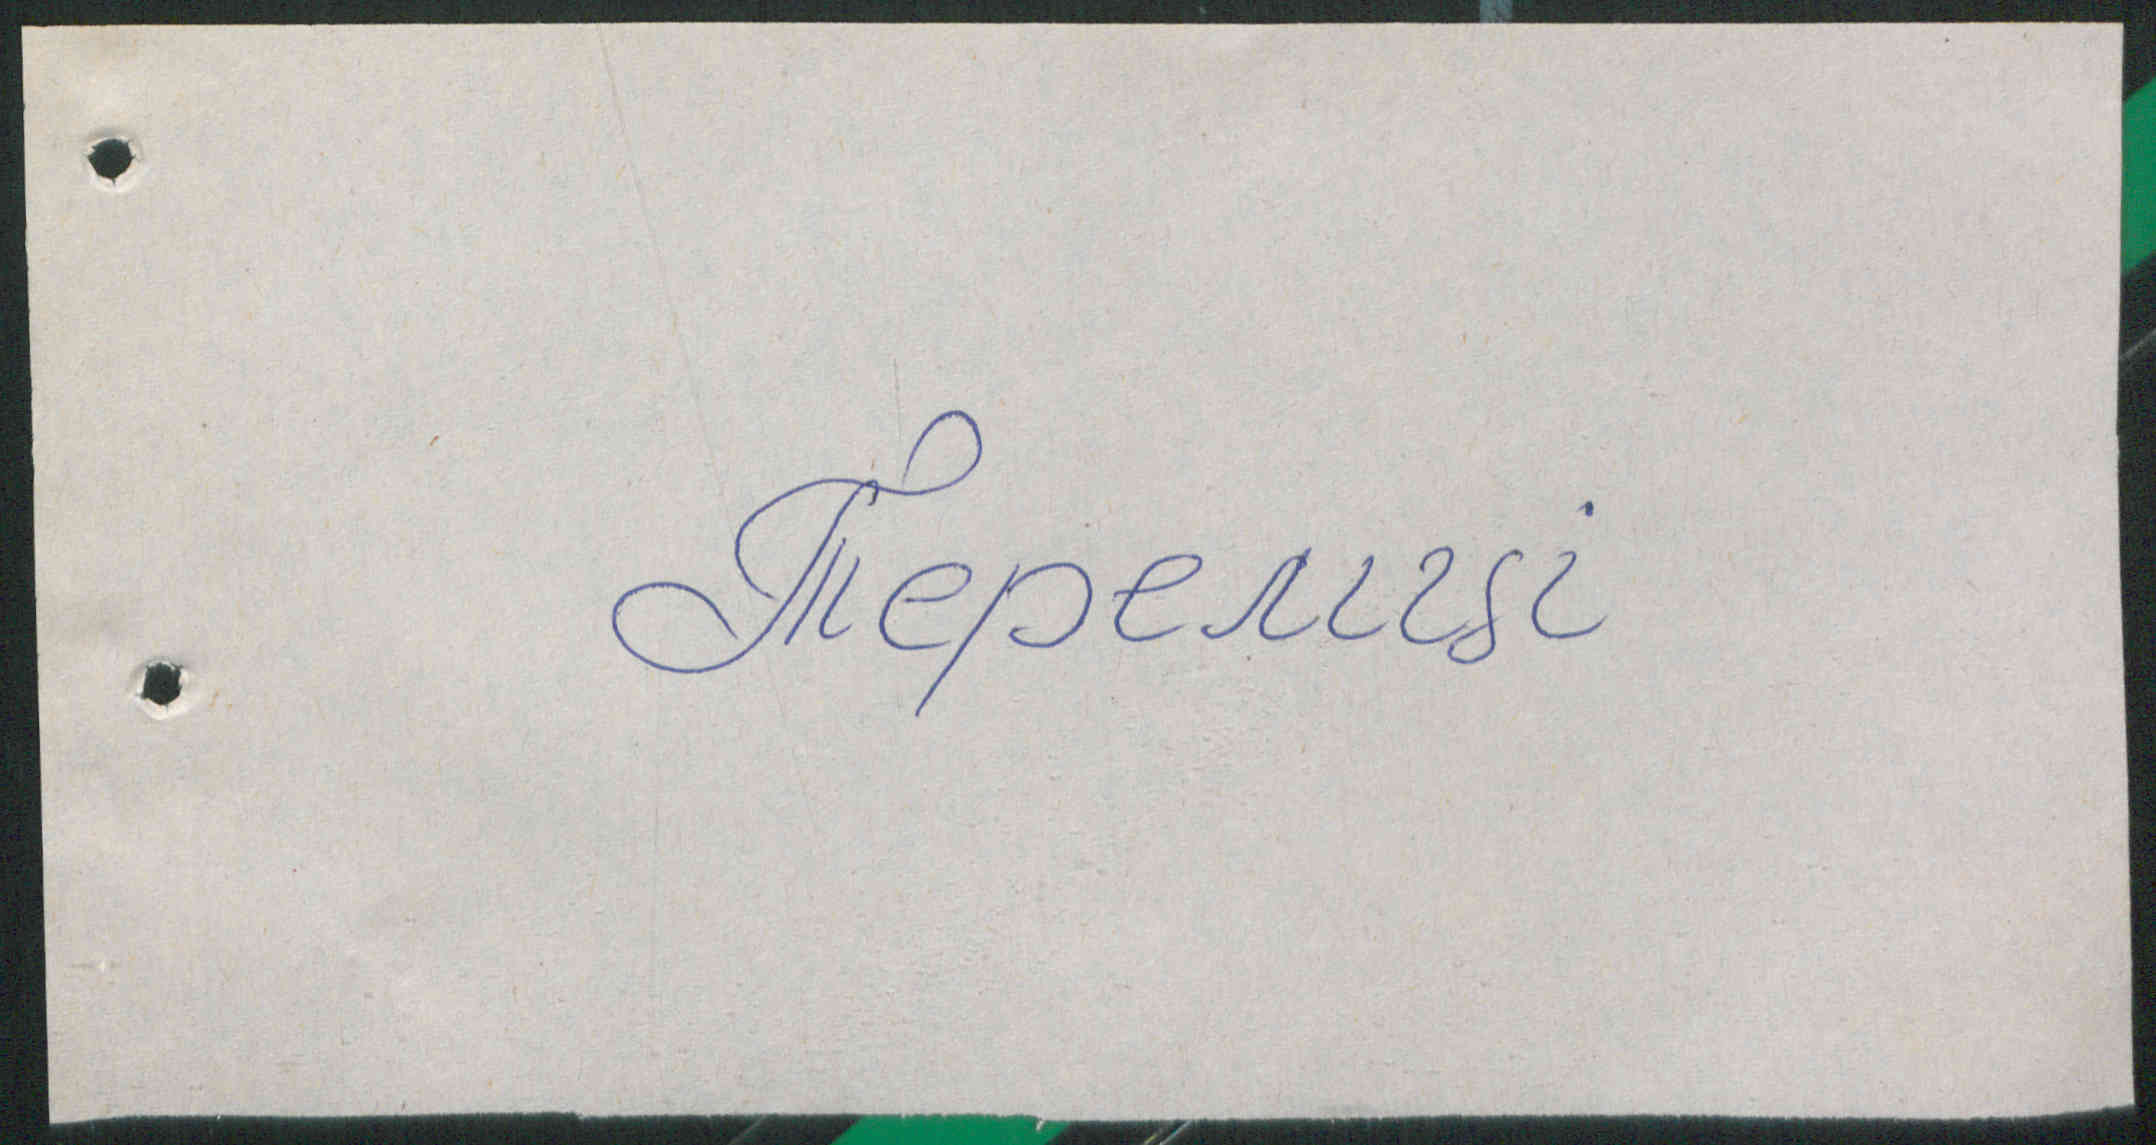 Теремці